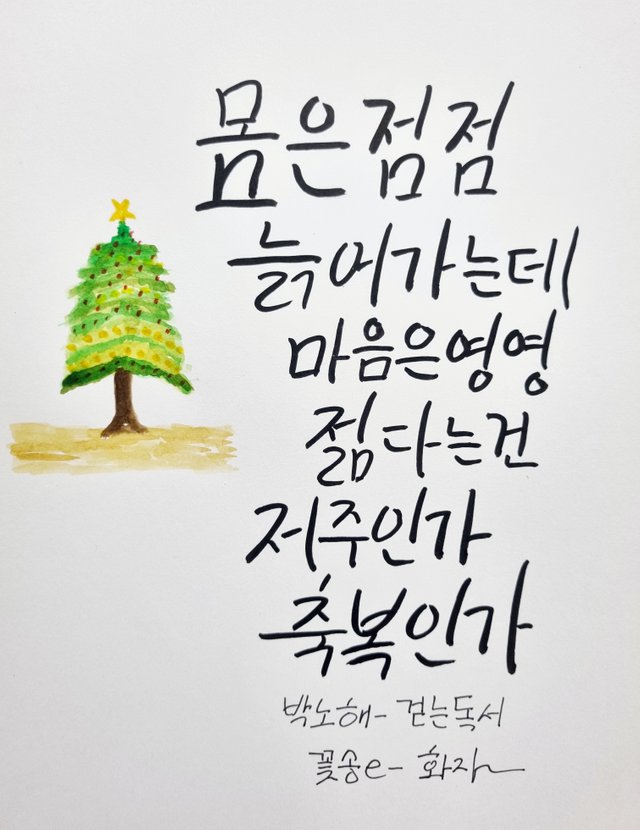 몸은 점점
늙어가는데
마음은 영영
젊다는 건
저주인가
축복인가
박노해- 걷는독서
꽃송e- 화자